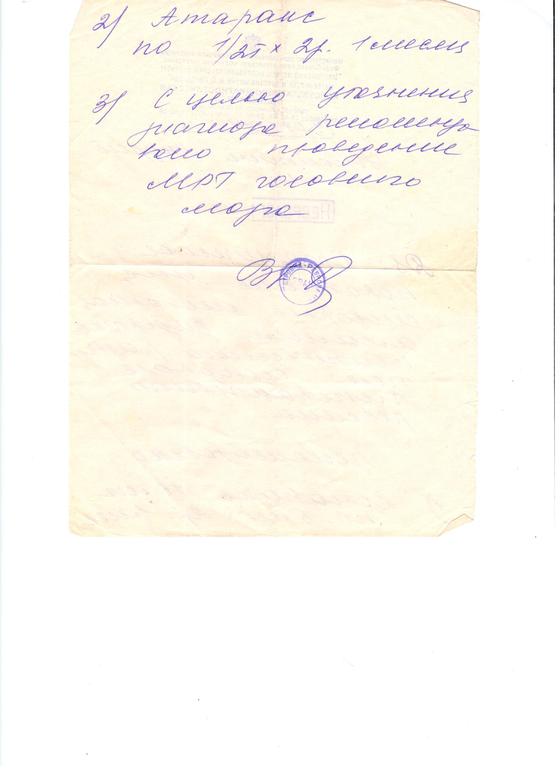 2) Атаракс
по 1/2т x 2р. 1 месяц
3) С целью уточнения
диагноза рекоменду
вано проведение
МРТ головного
мозга